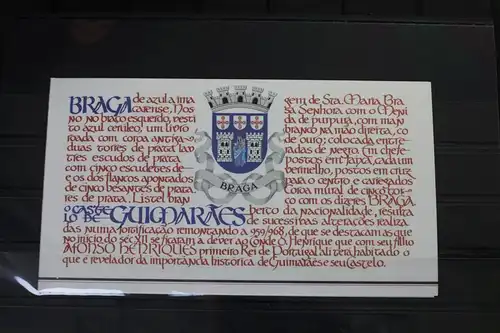 BRAGA de azul a ima gem de Sta. Maria Bra
carense, Nos sa Senhora com o Meni
no no braço esquerdo, vesti da de púrpura, com man
to azul ceruleo, um livro branco na mão direita, co
roada com coroa antiga de ouro; colocada entre
duas torres de prata lavradas de negro. Em chefe
tres escudos de prata postos em faxa, cada um
com cinco escudetes de vermelho, postos em cruz
e os dos flancos apontados ao centro e carregados
de cinco besantes de prata coroa mural de cinco tor
res de prata. Listel bran co com os dizeres BRAGA.
BRAGA
O CASTE
LO DE GUIMARÃES berço da nacionalidade, resulta
de sucessivas alterações realiza
das numa fortificação remontando a 959/968, de que se destacam as que
no início do sec XII se ficaram a dever ao Conde D. Henrique que com seu filho
AFONSO HENRIQUES primeiro Rei de Portugal ali terá habitado o
que é revelador da importância historica de Guimarães e seu Castelo.